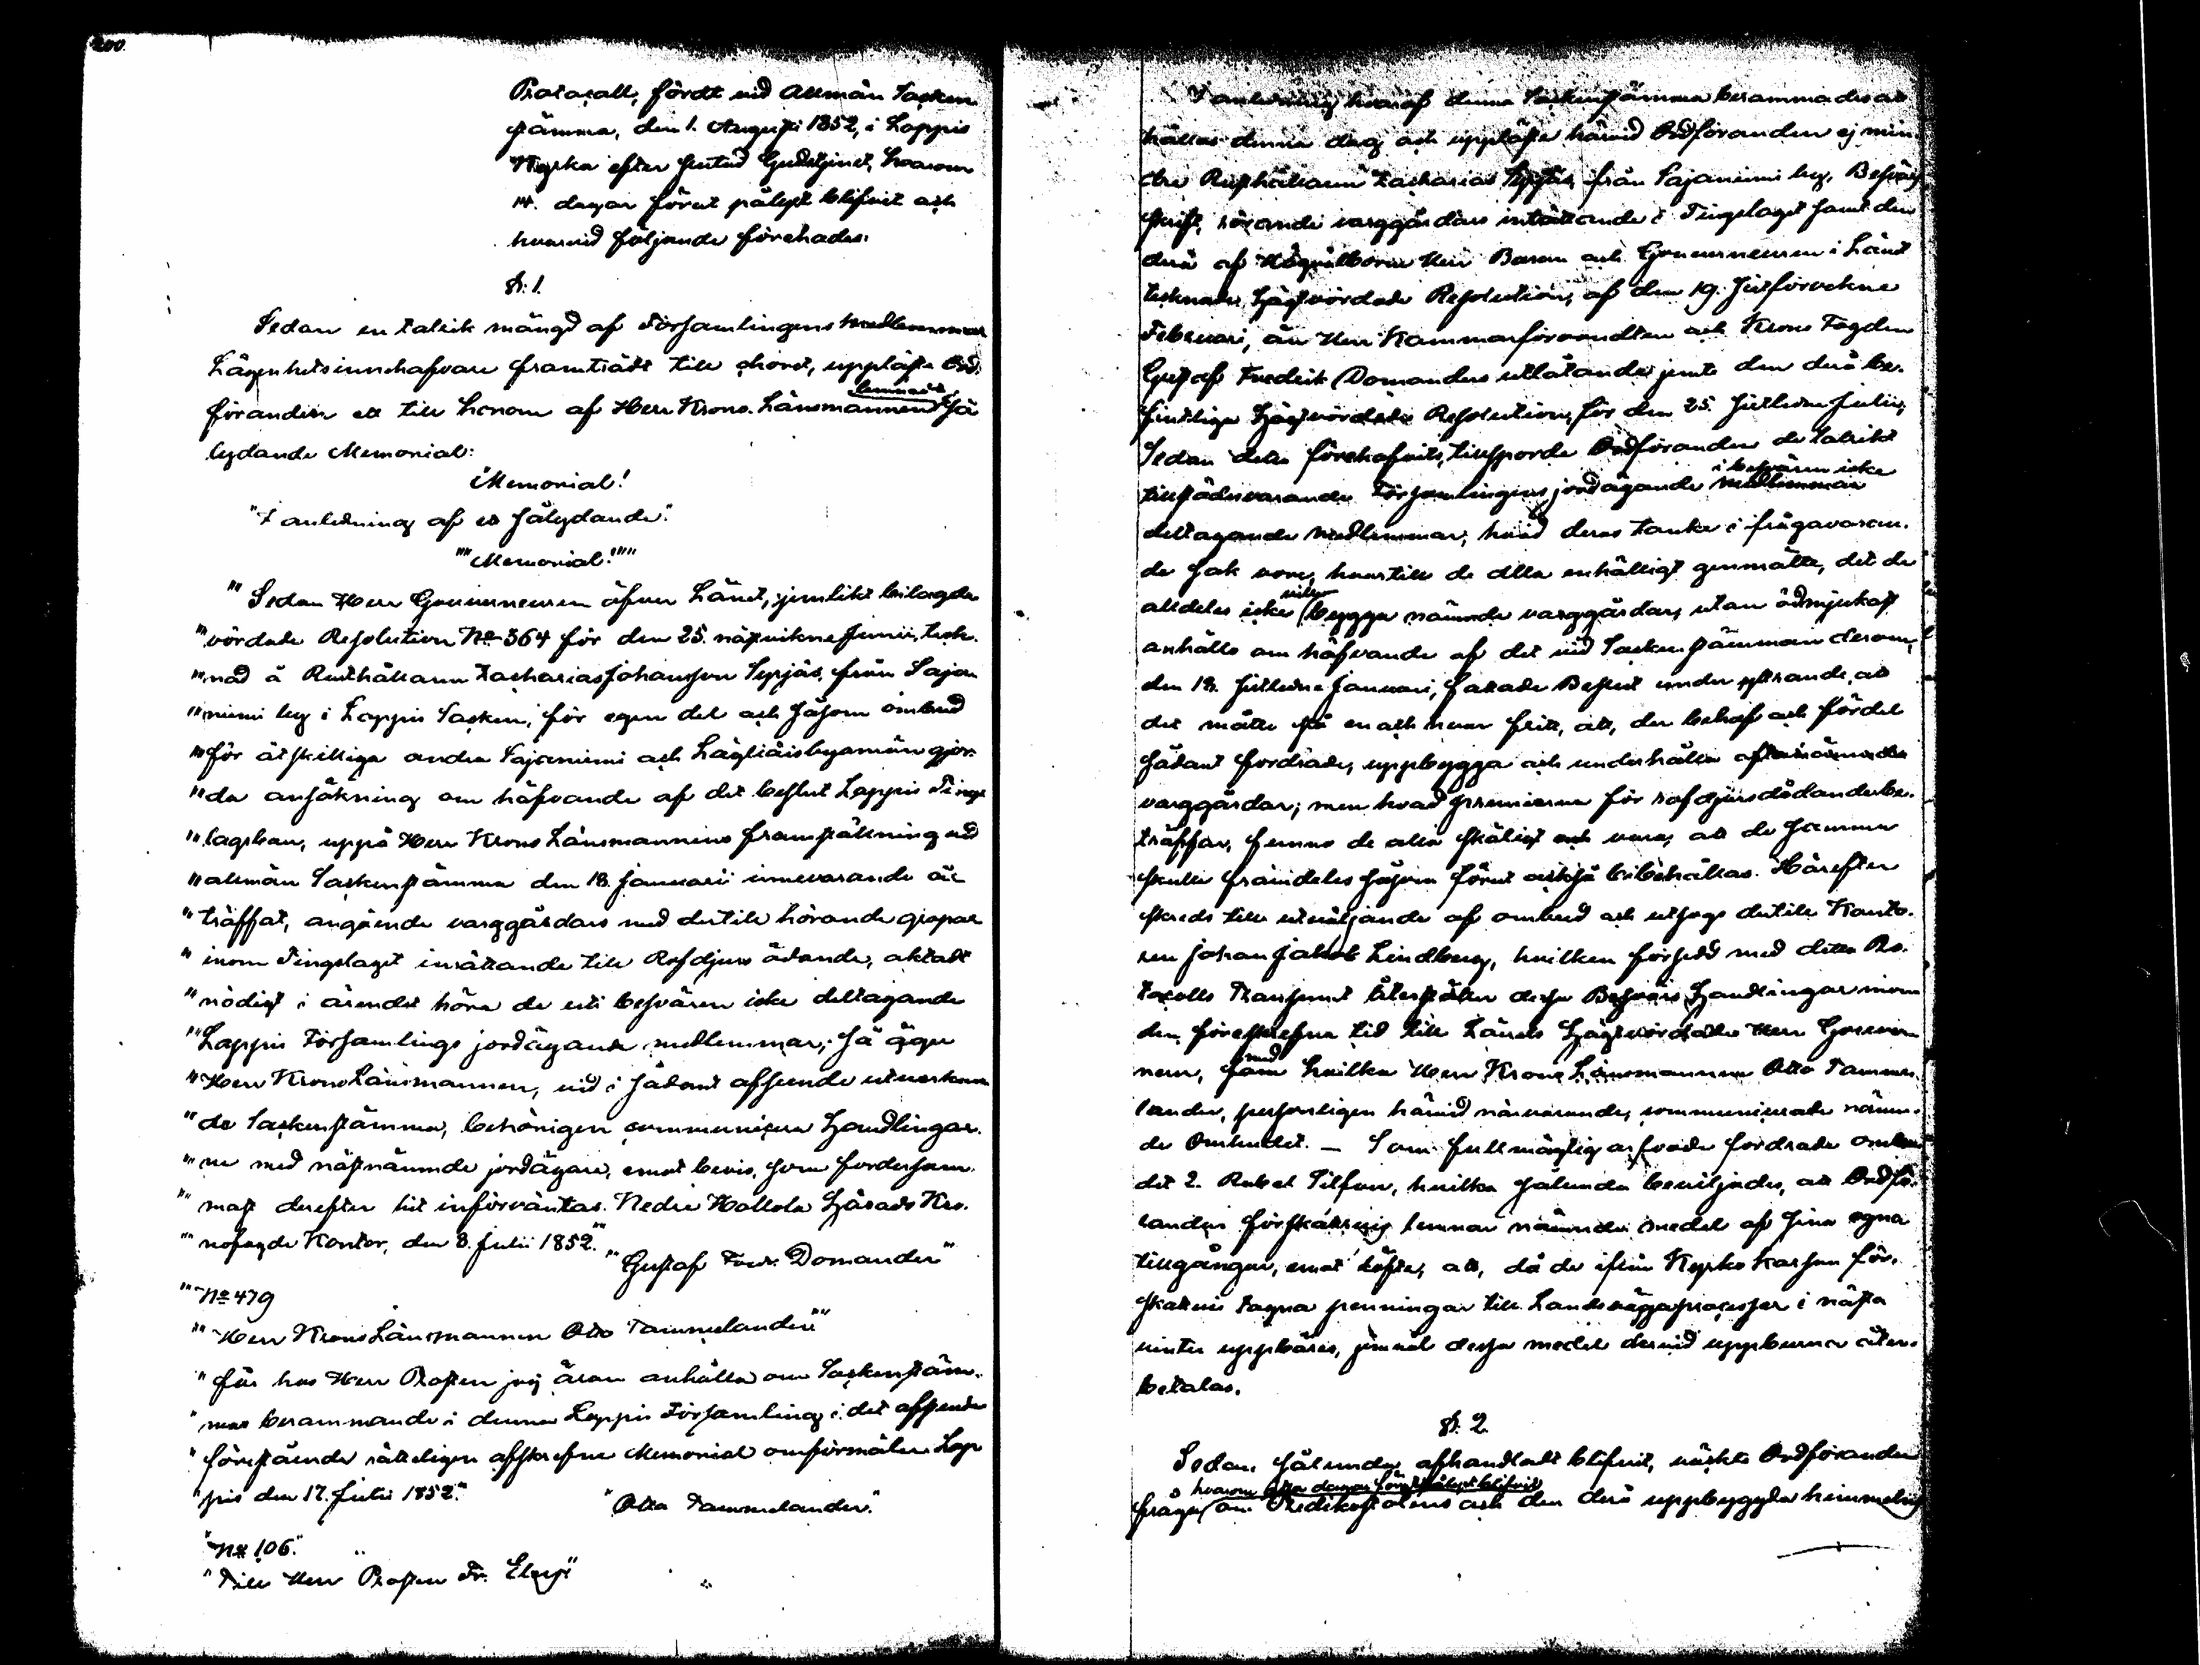 200
Protocoll, fördt vid Allmän Socken
stämma, den 1. Augusti 1852, i Loppis
Kyrka efter slutad Gudstjenst, hvarom
14. dagar förut pålyst blifvit och
hvarvid följande förehades:
§. 1.
Sedan en talrik mängd af Församlingens medlemmar
Lägenhetsinnehafvare framträdt till choret, uppläste Ord-
föranden ett till honom af Herr Krono Länsmannen lemnadt så
lydande Memorial:
"Memorial!
"I anledning af ett sålydande"
""Memorial!""
"" Sedan Herr Gouverneuren öfver Länet, jemlikt bilagde
"" vördade Resolution No 364 för den 25. nästvikne Junii, teck-
"" nad å Rusthållaren Zacharias Johansson Seppäs, från Saja-
"" niemi by i Loppis Socken, för egen del och såsom ombud
"" för åtskilliga andra Sajaniemi och Läyliäisbyamän gjor-
"" da ansökning om häfvande af det beslut Loppis Tings
"" lagsboer, uppå Herr Krono Länsmannens framställning vid
"" allmän Sockenstämma den 18. Januarii innevarande år
"" träffat, angående varggårdars med dertill hörande gropar
"" inom Tingslaget inrättande till Rofdjurs ödande, aktadt
"" nödigt i ärendet höra de uti besvären icke deltagande
"" Loppis Församlings jordägande medlemmar; så äger
"" Herr Krono Länsmannen, vid i sådant afseende utverkan-
"" de Sockenstämma, behörigen communicera Handlingar-
"" ne med nästnämnde jordägare, emot bevis, som fordersam-
"" mast derefter hit införväntas. Nedre Hollola Härads Kro-
"" nofogde Kontor, den 3. Julii 1852.""
"" Gustaf Fredr. Domander""
"" No 479
"" Herr Krono Länsmannen Otto Tammelander""
" får hos Herr Prosten jag äran anhålla om Sockenstäm-
" mas berammande i denna Loppis Församling i det afseende
" föreståender rätteligen afskrefne Memorial omförmäler. Lop-
" pis den 17. Julii 1852."
"Otto Tammelander."
"No 106."
"Till Herr Prosten Fr.
I anledning hvaraf denna Sockenstämma berammades att
hållas denna dag och uppläste härvid Ordföranden ej min-
dre Rusthållaren Zacharias Seppäs, från Sajaniemi by, Besvärs
skrift, rörande varggårdars inrättande i Tingslaget samt den
derå af Högvälborne Herr Baron och Gouverneuren i Länet
tecknade Högtvördade Resolution, af den 19. sistförvekne
Februari, än Herr Kammarförvandten och Krono Fogden
Gustaf Fredrik Domanders utlåtande jemte den derå be-
fintliga Högtvördade Resolution, för den 25. sistledne Junii;
Sedan detta förehafvits, tillsporde Ordföranden de talrikt
tillstädesvarande Församlingens jordägande medlemmar i besvären icke
deltagande medlemmar, hvad deras tanke i frågavaran-
de sak vore, hvartill de alla enhälligt genmälte, det de
alldeles icke vilja bygga nämnde varggårdar, utan ödmjukast
anhålla om häfvande af det vid Sockenstämman derom,
den 18. sistledne Januari, fattade Beslut under yttrande, att
det måtte stå en och hvar fritt, att, der behof och fördel
sådant fordrade, uppbygga och underhålla oftanämnde
varggårdar; men hvad premierna för rofdjurs dödande be-
träffar, funno de alla skäligt vara, att de samma
skulle framdeles såsom förut också bibehållas. Härefter
skreds till utväljande af ombud och utsågs dertill Kanto-
ren Johan Jakob Lindberg, hvilken försedd med detta Pro-
tocolls Transsumt återställer dessa Besvärs Handlingar inom
den föreskrefna tid till Länets Högtvördade Herr Gouver-
neur, samt med hvilka Herr Krono Länsmannen Otto Tamme-
lander, personligen härvid närvarande, communicerade nämn-
de Ombudet. — Som fullmägtig arfvode fordrade ombu-
det 2. Rubel Silfver, hvilka sålunda beviljades, att Ordfö-
randen förskottsvis lemnar nämnde medel af sina egna
tillgångar, emot löfte, att, då de ifrån Kyrko Kassan för-
skottvis tagna penningar till Landsvägaprocesser i nästa
vinter uppbäres, jemväl dessa medel dervid uppburna åter-
betalas.
§. 2.
Sedan sålunda afhandladt blifvit, väckte Ordföranden
hvarom åtta dagar förut pålyst blifvit
fråga om Predikostolens och den derå uppbyggda himmelns